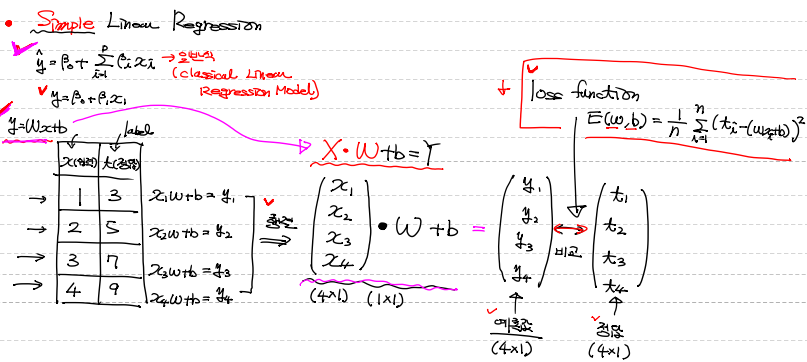 • Simple Linear Regression
ŷ = β₀ + Σᵢ₌₁ᵖ βᵢxᵢ → 일반식
(Classical Linear Regression Model)
y = β₀ + β₁x₁
y = Wx + b
label
x(입력) t(정답)
1 3
2 5
3 7
4 9
x₁w+b = y₁
x₂w+b = y₂
x₃w+b = y₃
x₄w+b = y₄
행렬
⇒
X·W+b = Y
(x₁ x₂ x₃ x₄) • W + b = (y₁ y₂ y₃ y₄) ↔ (t₁ t₂ t₃ t₄)
비교
(4×1) (1×1)
예측값
(4×1)
정답
(4×1)
+ loss function
E(w,b) = 1/n Σᵢ₌₁ⁿ (tᵢ-(wxᵢ+b))²